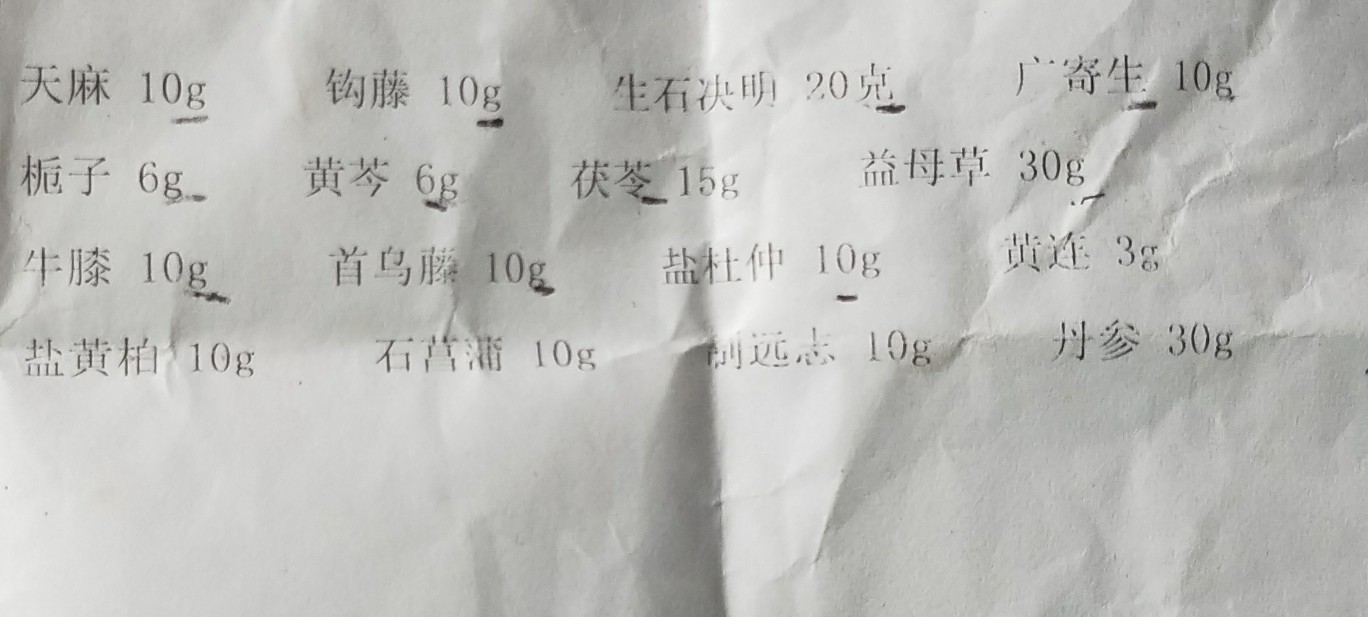 天麻 10g 钩藤 10g 生石决明 20克 广寄生 10g
栀子 6g 黄芩 6g 茯苓 15g 益母草 30g
牛膝 10g 首乌藤 10g 盐杜仲 10g 黄连 3g
盐黄柏 10g 石菖蒲 10g 制远志 10g 丹参 30g